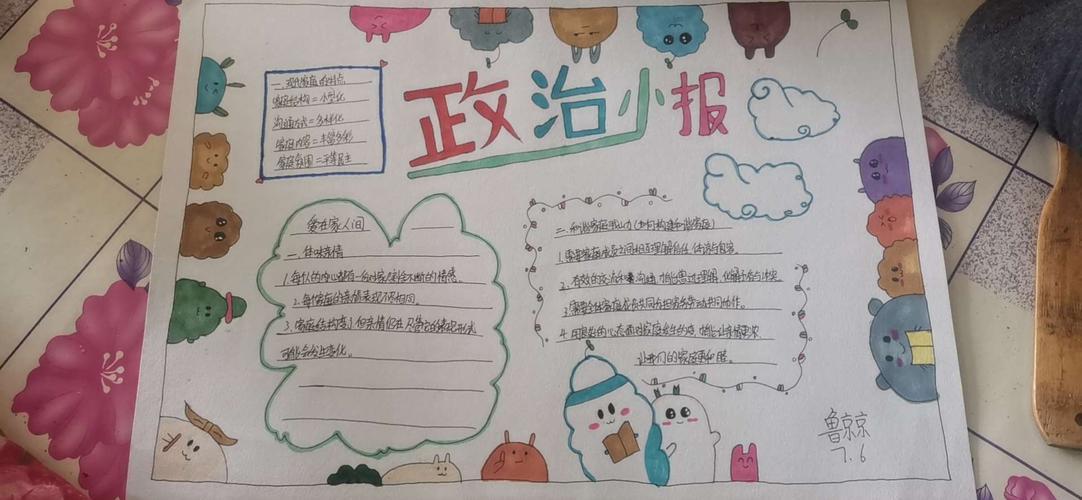 政治小报
一、现代家庭的特点
家庭结构=小型化
沟通方式=多样化
家庭内容=丰富多彩
家庭氛围=平等民主
爱在家人间
一、体味亲情
1.每个人的内心都有一份对家割舍不断的情感。
2.每个家庭的亲情表现不尽相同。
3.家庭结构变了但亲情仍在 只是它的表现形式
可能会发生变化。
二、和谐家庭我出力(如何构建和谐家庭)
1.需要家庭成员之间相互理解信任、体谅与包容。
2.有效的交流和沟通
3.需要全体家庭成员共同分担家务劳动共同协作。
4.用
让我们的家庭更和睦。
鲁京京
7.6